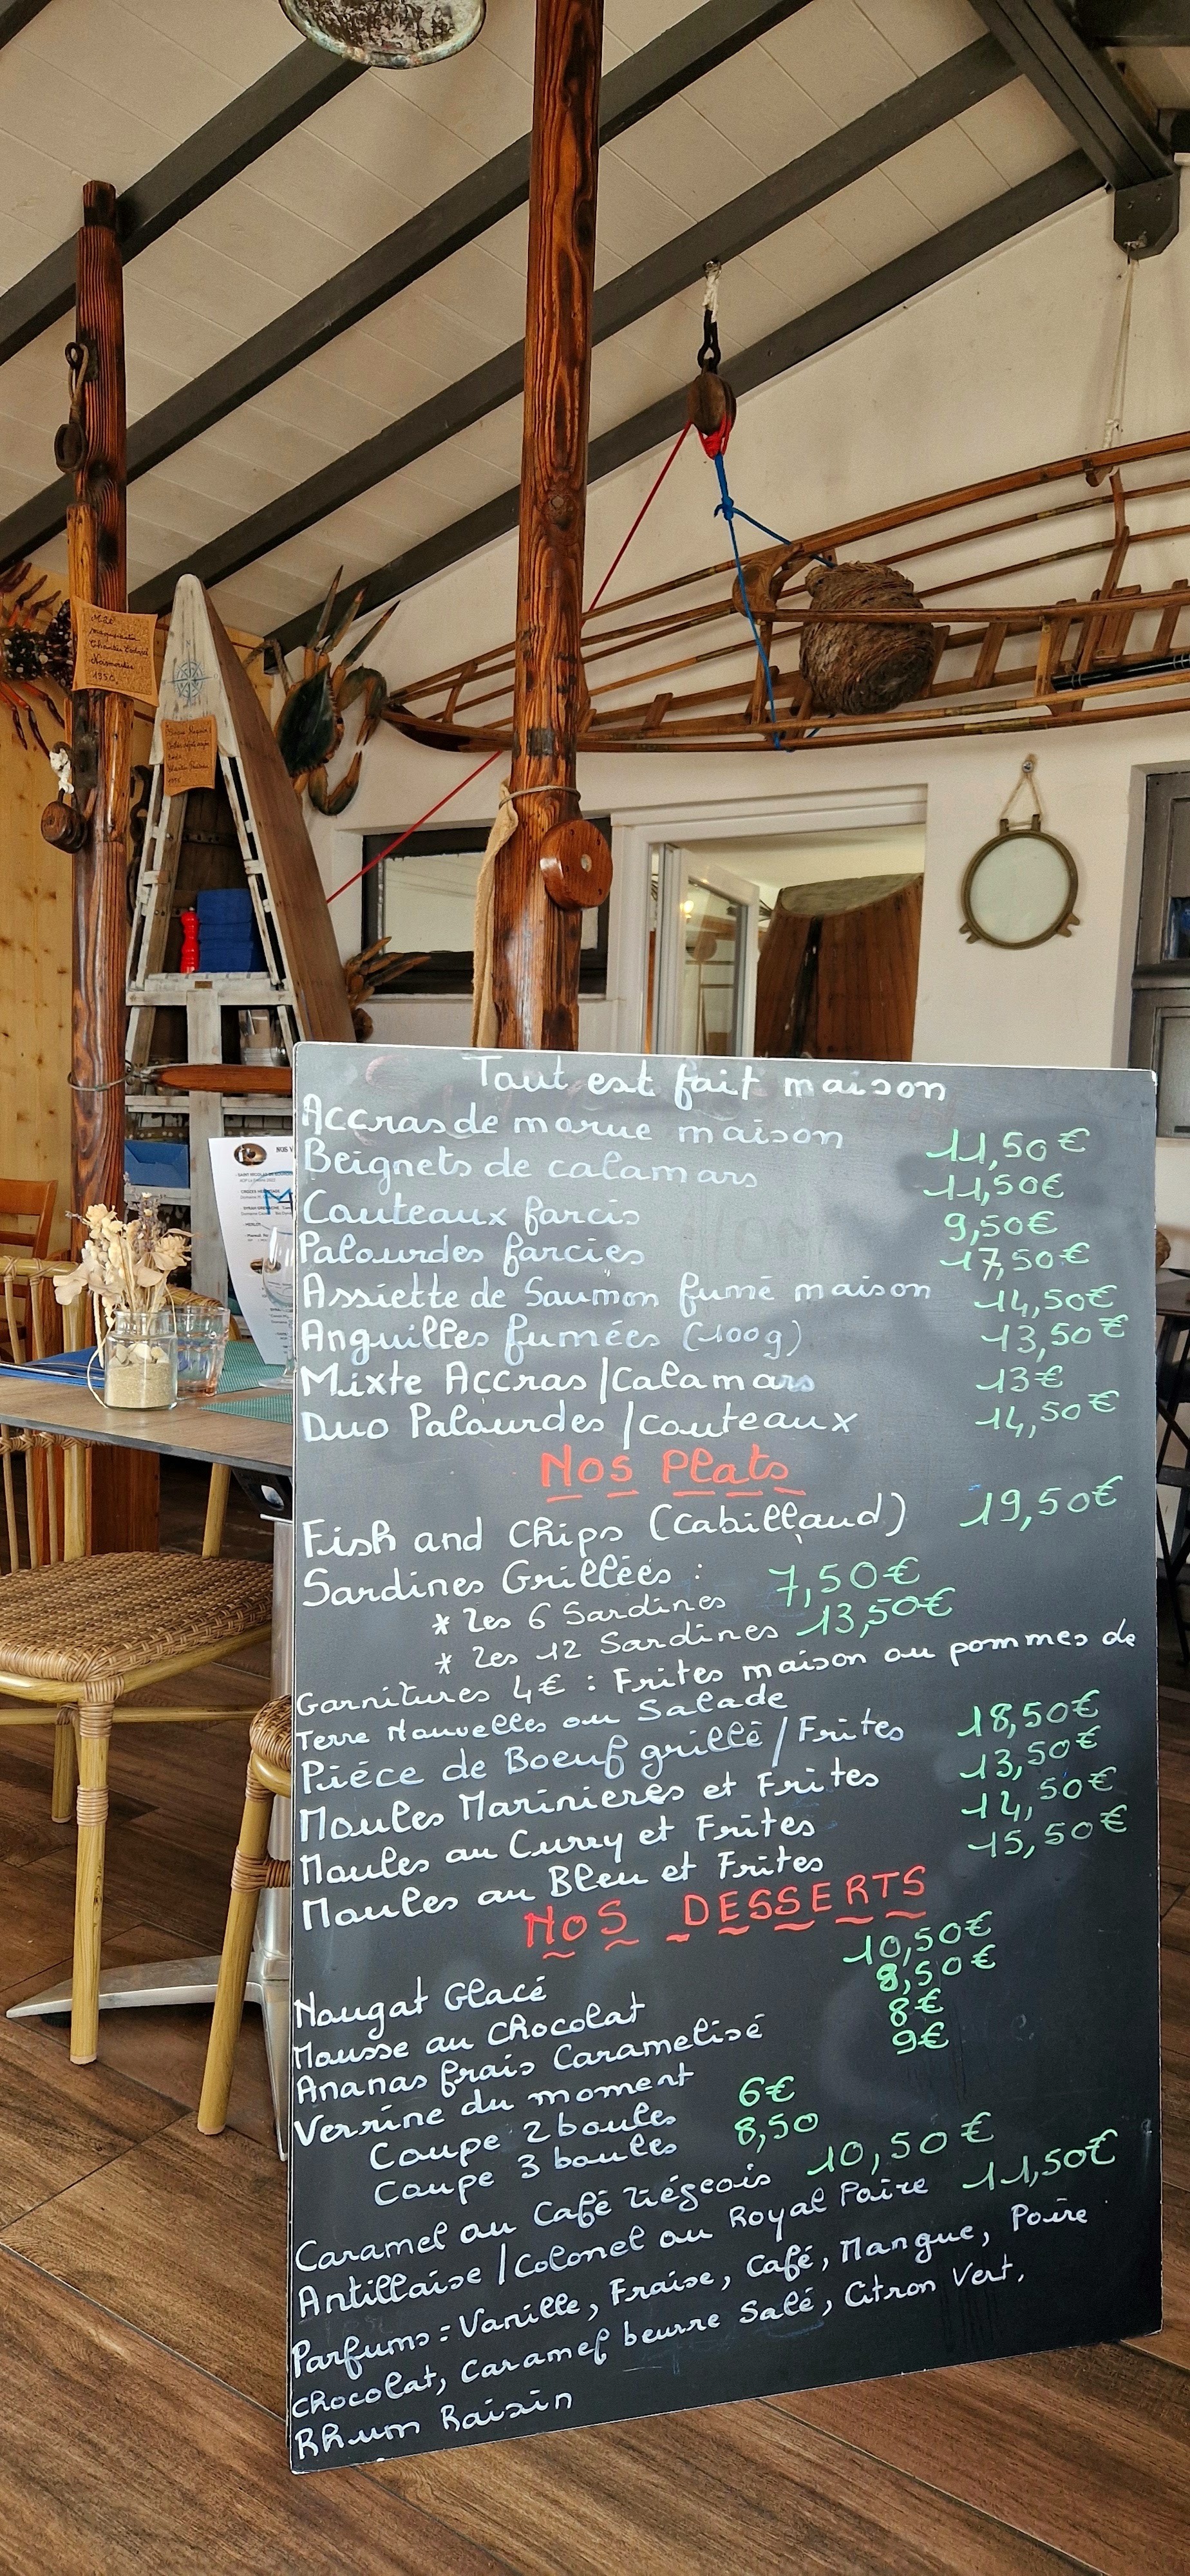 Tout est fait maison
Accras de morue maison 11,50€
Beignets de calamars 11,50€
Couteaux farcis 9,50€
Palourdes farcies 17,50€
Assiette de Saumon fumé maison 14,50€
Anguilles fumées (100g) 13,50€
Mixte Accras/Calamars 13€
Duo Palourdes/couteaux 14,50€
Nos Plats
Fish and Chips (Cabillaud) 19,50€
Sardines Grillées :
* Les 6 Sardines 7,50€
* Les 12 Sardines 13,50€
Garnitures 4€ : Frites maison ou pommes de
Terre Nouvelles ou Salade
Piéce de Boeuf grillé/Frites 18,50€
Moules Marinieres et Frites 13,50€
Moules au Curry et Frites 14,50€
Moules au Bleu et Frites 15,50€
NOS DESSERTS
Nougat Glacé 10,50€
Mousse au Chocolat 8,50€
Ananas frais Caramelisé 8€
Verrine du moment 9€
Coupe 2 boules 6€
Coupe 3 boules 8,50
Caramel ou Café Liégeois 10,50€
Antillaise/Colonel ou Royal Poire 11,50€
Parfums : Vanille, Fraise, Café, Mangue, Poire
Chocolat, Caramel beurre Salé, Citron Vert,
Rhum Raisin